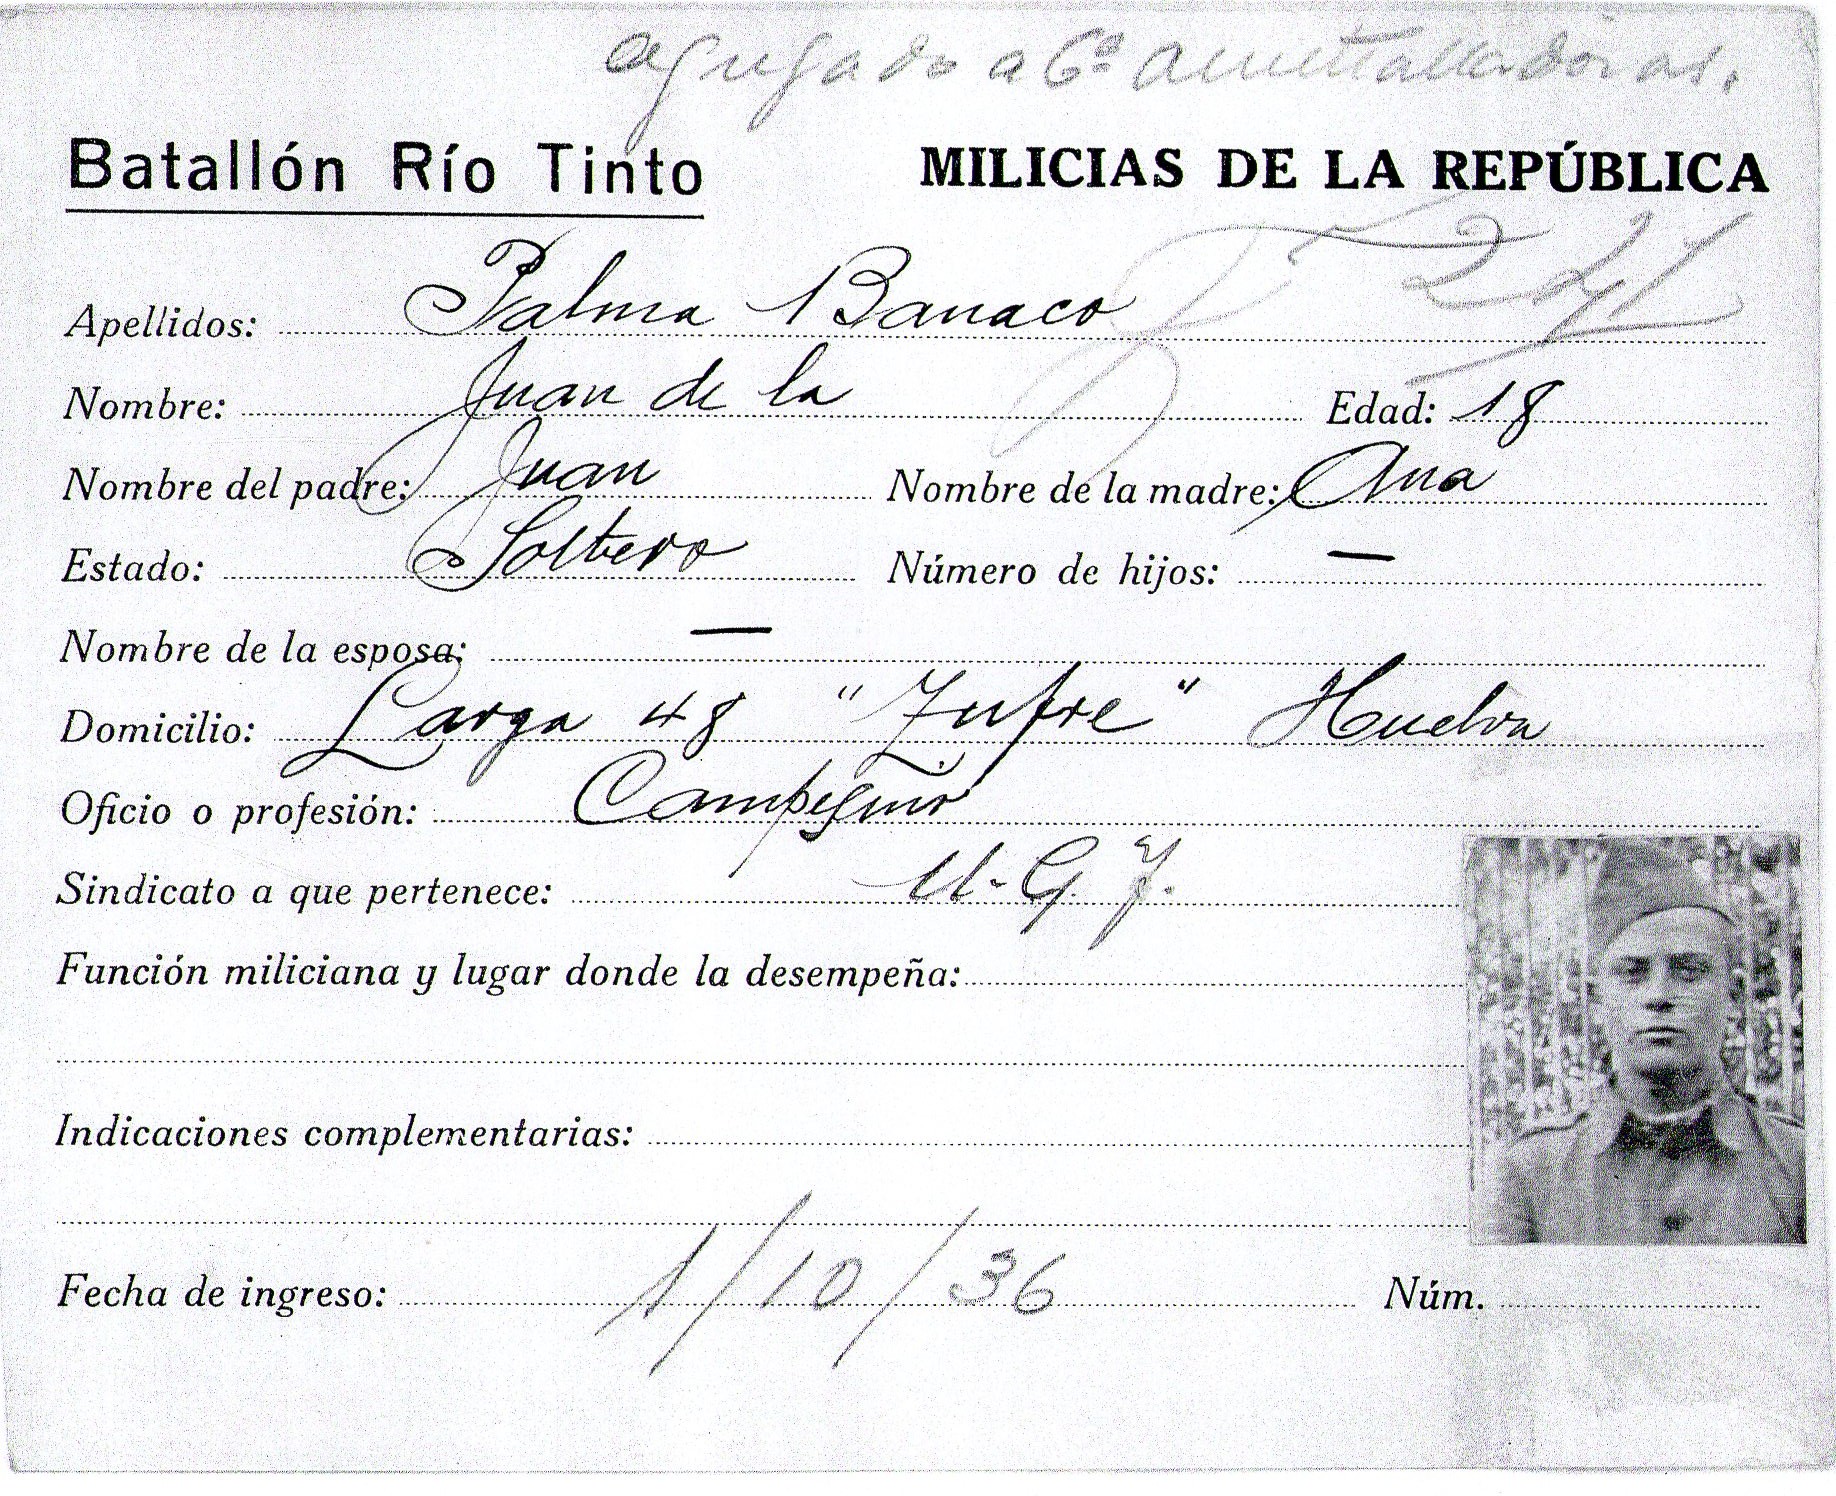 agregado a Cª Ametralladoras.
Batallón Río Tinto MILICIAS DE LA REPÚBLICA
Apellidos: Palma Banaco
Nombre: Juan de la Edad: 18
Nombre del padre: Juan Nombre de la madre: Ana
Estado: Soltero Número de hijos: —
Nombre de la esposa: —
Domicilio: Larga 48 "Zufre" Huelva
Oficio o profesión: Campesino
Sindicato a que pertenece: U.G.T.
Función miliciana y lugar donde la desempeña:
Indicaciones complementarias:
Fecha de ingreso: 1/10/36 Núm.